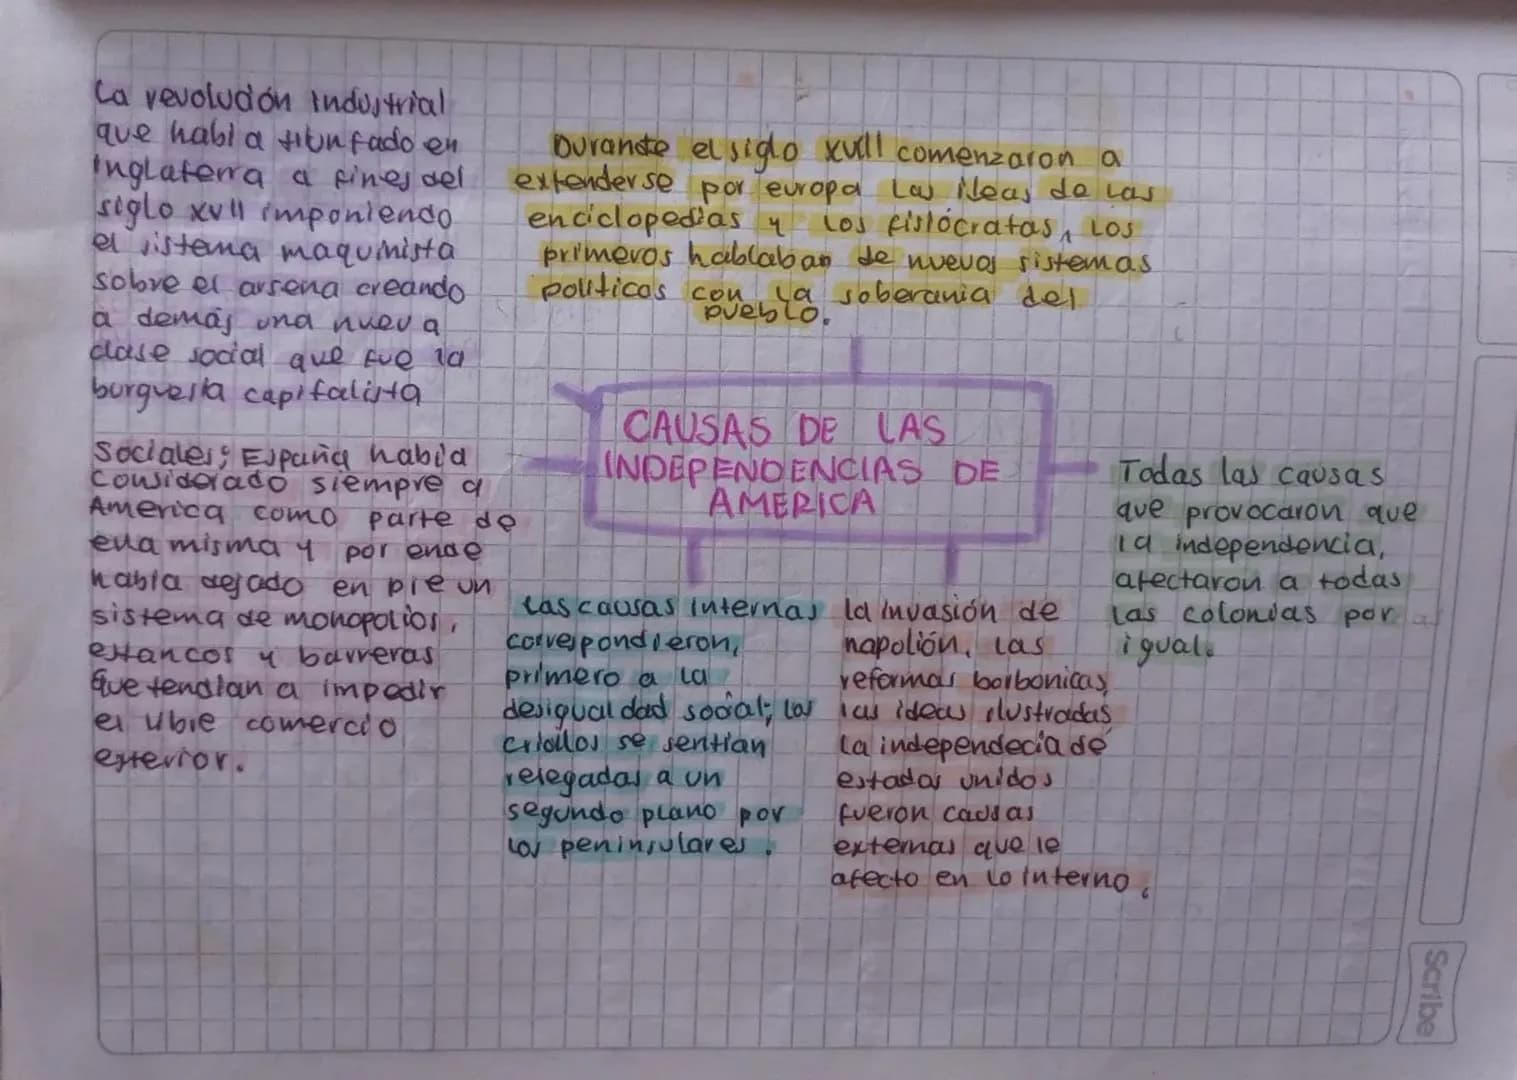 La revolución industrial
que habia triunfado en
inglaterra a fines del
siglo xvll imponiendo
el sistema maquinista
sobre el arsena creando
a demás una nueva
clase social que fue la
burguesia capitalista
Durante el siglo xvlll comenzaron a
extenderse por europa las ideas de las
enciclopedias y los fisiócratas, los
primeros hablaban de nuevos sistemas
politicos con la soberania del
pueblo.
CAUSAS DE LAS
INDEPENDENCIAS DE
AMERICA
Sociales; España habia
considerado siempre a
America como parte de
ella misma y por ende
habia dejado en pie un
sistema de monopolios,
estancos y barreras
que tendian a impedir
el libre comercio
exterior.
Las causas internas
correspondieron,
primero a la
desigualdad social; los
criollos se sentian
relegadas a un
segundo plano por
los peninsulares.
la invasión de
napolión, las
reformas borbonicas,
las ideas ilustradas
la independecia de
estados unidos
fueron causas
externas que le
afecto en lo interno.
Todas las causas
que provocaron que
la independencia,
afectaron a todas
las colonias por
igual.
Scribe